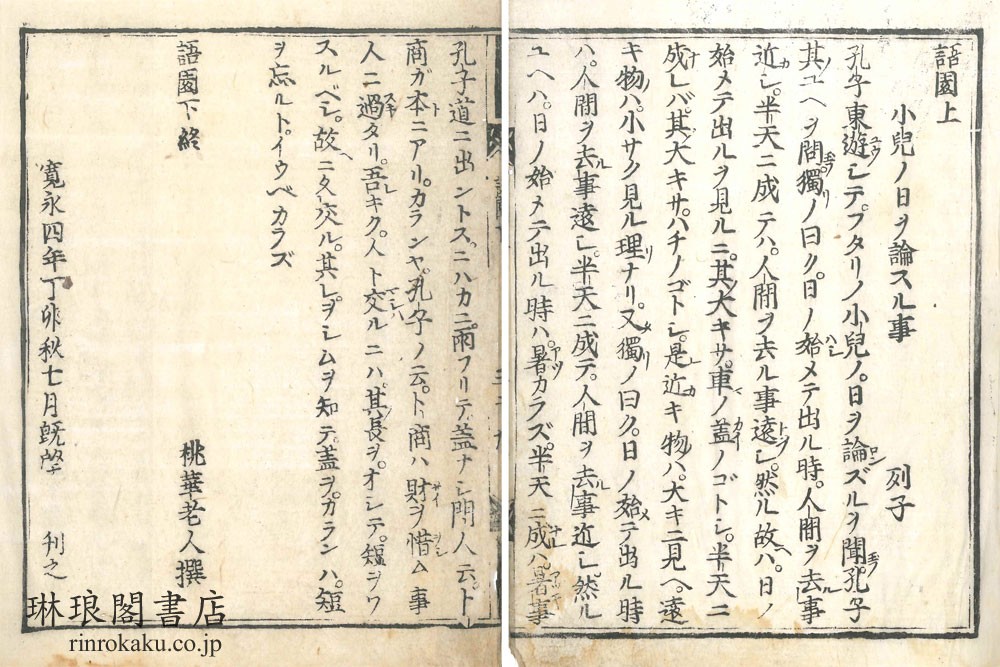 語園上
小兒ノ日ヲ論スル事 列子
孔子東遊シテ。フタリノ小兒ノ。日ヲ論ズルヲ聞。孔子
其ユヘヲ問。獨ノ曰ク。日ノ始メテ出ル時。人間ヲ去事
近シ。半天ニ成テハ。人間ヲ去ル事遠シ。然ル故ハ。日ノ
始メテ出ルヲ見ルニ。其大キサ。車ノ蓋ノゴトシ。半天ニ
成レバ。其大キサ。ハチノゴトシ。是近キ物ハ。大キニ見ヘ。遠
キ物ハ。小サク見ル理ナリ。又獨ノ曰ク。日ノ始テ出ル時
ハ。人間ヲ去事遠シ。半天ニ成テ。人間ヲ去事近シ。然ル
ユヘハ。日ノ始メテ出ル時ハ。暑カラズ。半天ニ成ハ。暑事
孔子道ニ出ントス。ニハカニ。雨フリテ。蓋ナシ。門人云。ト
商ガ本ニアリ。カランヤ。孔子ノ云。ト商ハ財ヲ惜ム事
人ニ過タリ。吾キク。人ト交ルニハ。其長ヲ。オシテ。短ヲワ
スルベシ。故ニ久交ル。其レヲシムヲ知テ。蓋ヲ。カランハ。短
ヲ忘ルト。イウベカラズ
語園下終
桃華老人撰
寛永四年丁卯秋七月既望 刊之
琳琅閣書店
rinrokaku.co.jp